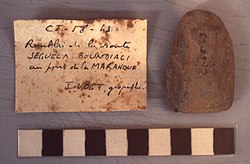 CI-58-43
Remblai de la route
SEGUELA - BOUNDIALI
au pont de la MARAHOUÉ
J. VOGT, géographe